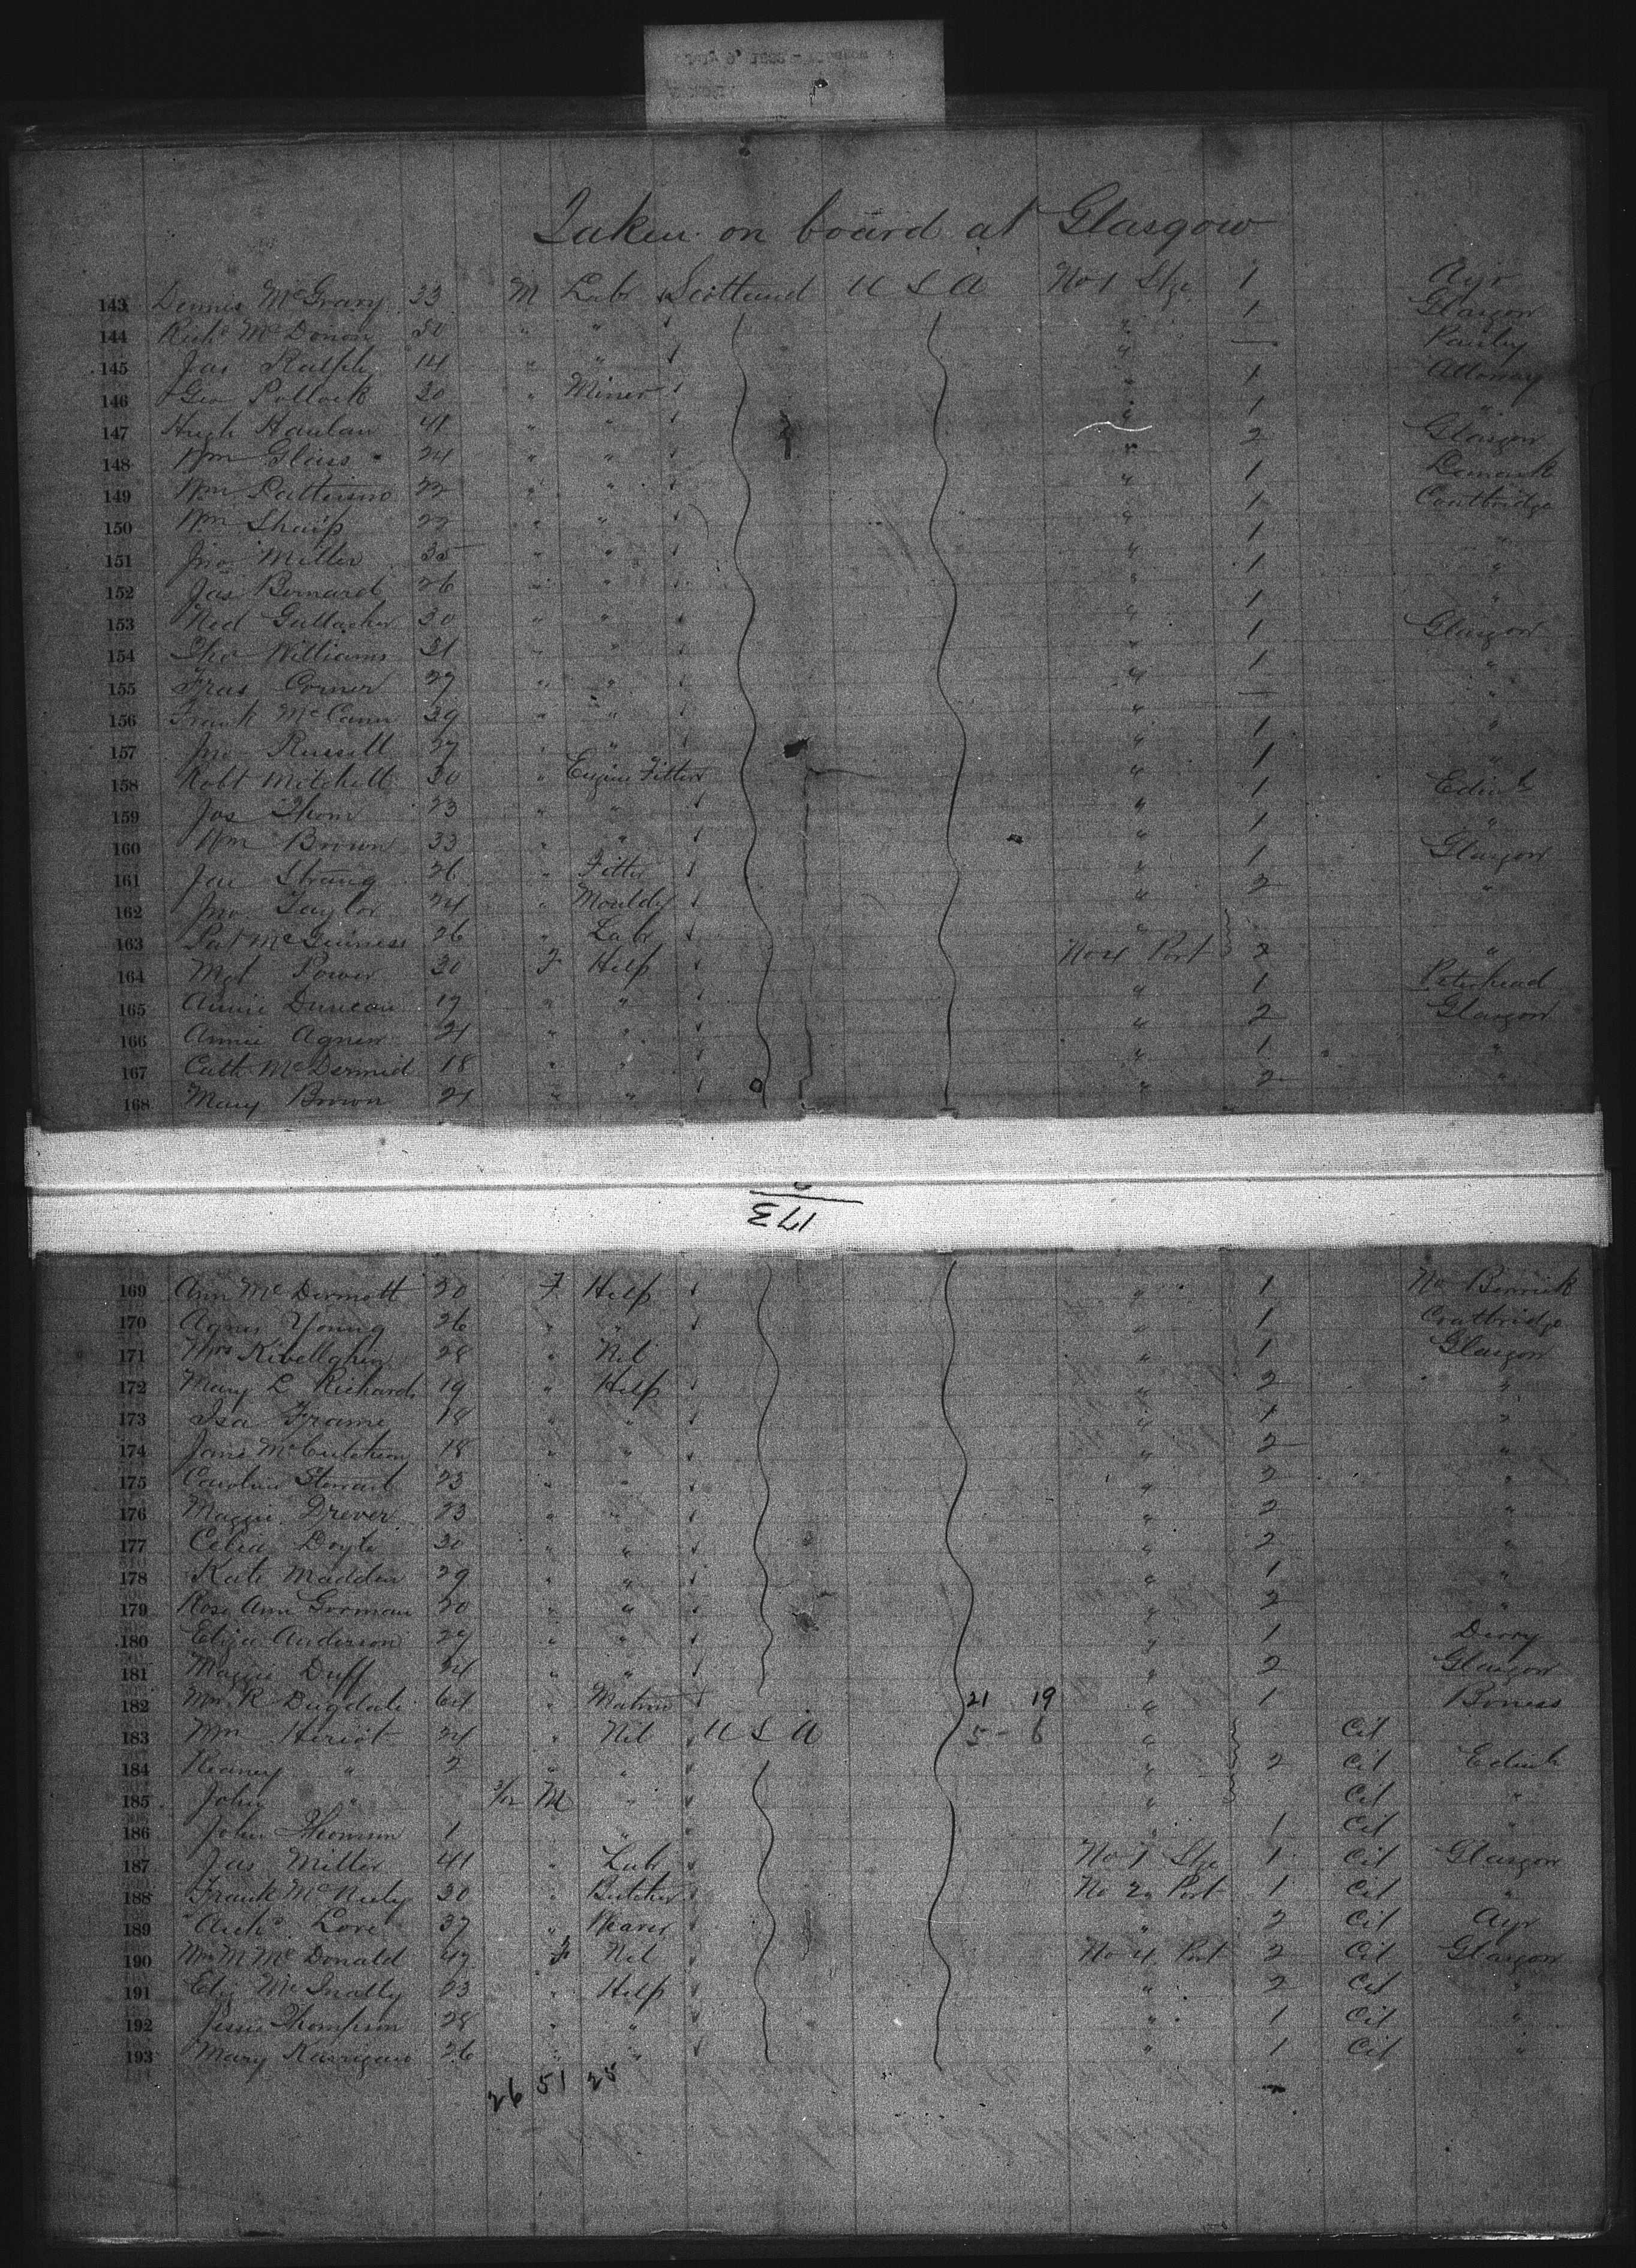 Taken on board at Glasgow
143 Dennis McGrary 33 M Labr Scotland U S A No 1 Stge 1 Ayr
144 Richd McDonon 30 " " " 1 Glasgow
145 Jas Ralph 14 " " " — Paisley
146 Geo Pollock 30 " Miner " 1 Alloway
147 Hugh Hanlan 41 " " " 1 "
148 Wm Glass 24 " " " 2 Glasgow
149 Wm Patterson 22 " " " 1 Lanark
150 Wm Sharp 22 " " " 1 Coatbridge
151 Jno Miller 35 " " " 1 "
152 Jas Bernard 26 " " " 1 "
153 Ned Gallacher 30 " " " 1 "
154 Tho Williams 31 " " " 1 Glasgow
155 Fras Corner 27 " " " 1 "
156 Frank McCann 39 " " " — "
157 Jno Russell 27 " " " 1 "
158 Robt Mitchell 30 " Engine Fitter " 1 "
159 Jas Thom 23 " " " 1 Edinh
160 Wm Brown 33 " " " 1 "
161 Jas Strang 26 " Fitter " 1 Glasgow
162 Jno Taylor 24 " " 2 "
163 Pat McGuiness 26 " Labr "
164 Mgt Power 30 F Help No 4 Port 2 "
165 Annie Duncan 19 " " " 1 Peterhead
166 Annie Agnew 21 " " " 2 Glasgow
167 Cath McDermid 18 " " " 1 "
168 Mary Brown 21 " " " 2 "
173
169 Ann McDermott 20 F Help " 1 No Berrick
170 Agnes Young 26 " " " 1 Coatbridge
171 Mrs 28 " Nil " 1 Glasgow
172 Mary L Richards 19 " Help " 2 "
173 Isa Frame 18 " " " 1 "
174 Jane McCutcheon 18 " " " 2 "
175 Caroline Stewart 23 " " " 2 "
176 Maggie Drever 23 " " " 2 "
177 Celia Doyle 30 " " " 2 "
178 Kate Madden 29 " " " 1 "
179 Rose Ann Gorman 20 " " " 2 "
180 Eliza Anderson 29 " " " 1 Derry
181 Maggie Duff 24 " " " 2 Glasgow
182 Mrs R Dugdale 64 " Matron 21 19 " 1 Boness
183 Mrs Heriot 24 " Nil U S A 5 - 6 " Cit
184 " 2 " " " 2 Cit Edinh
185 John " 3/12 M " " Cit "
186 John Thomson 1 " " " 1 Cit "
187 Jas Miller 41 " Labr No 1 Stge 1 Cit Glasgow
188 Frank McNeely 30 " Butcher No 2 Port 1 Cit "
189 Archd Love 37 " Weaver " 2 Cit Ayr
190 Mrs M McDonald 47 F Nil No 4 Port 2 Cit Glasgow
191 Eliz McInally 23 " Help " 2 Cit "
192 Jessie Thompson 28 " " " 1 Cit "
193 Mary Karrigan 26 " " " 1 Cit "
26 51 25